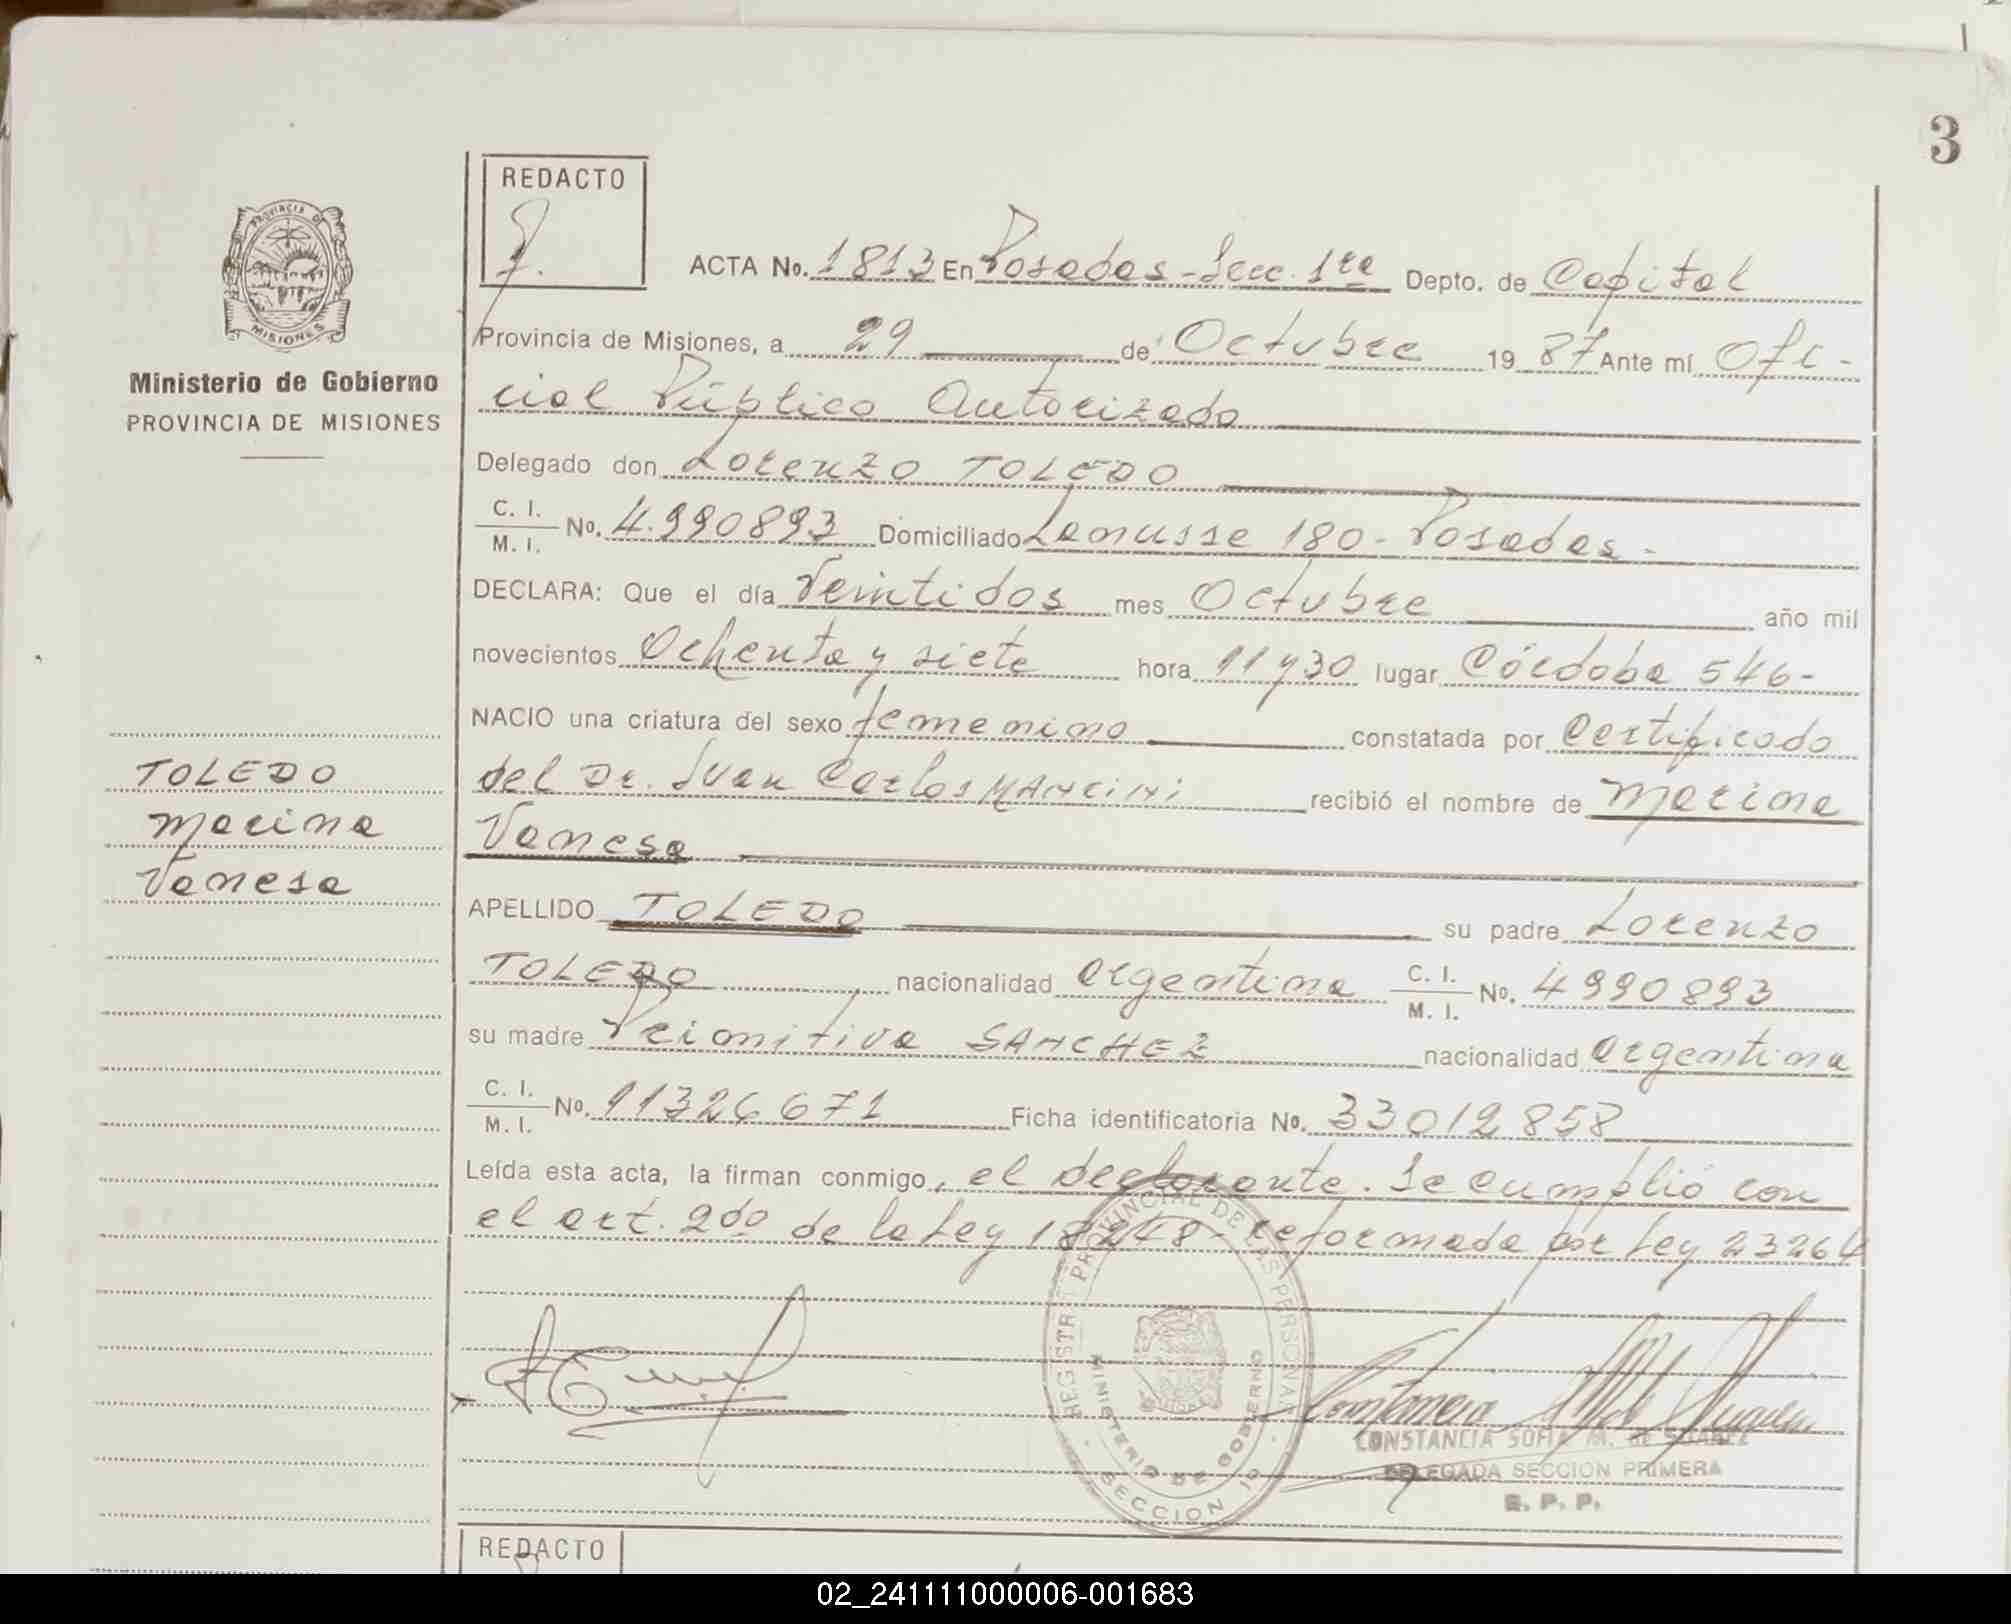 3
REDACTO
ACTA No. 1813 En Posadas - Secc. 1ra Depto. de Capital
Provincia de Misiones, a 29 de Octubre 19 87 Ante mí Ofi-
cial Público Autorizado
Delegado don Lorenzo TOLEDO
C. I. / M. I. No. 4.990893 Domiciliado Lanusse 180 - Posadas -
DECLARA: Que el día Veintidos mes Octubre año mil
novecientos Ochenta y siete hora 11 y 30 lugar Córdoba 546 -
NACIO una criatura del sexo femenino constatada por Certificado
del Dr. Juan Carlos MANCINI recibió el nombre de Marina
Vanesa
APELLIDO TOLEDO su padre Lorenzo
TOLEDO nacionalidad argentina C. I. / M. I. No. 4990893
su madre Primitiva SANCHEZ nacionalidad argentina
C. I. / M. I. No. 11326671 Ficha identificatoria No. 33012858
Leída esta acta, la firman conmigo, el declarante. Se cumplió con
el art. 2do de la Ley 18248 - reformada por Ley 23264
Ministerio de Gobierno
PROVINCIA DE MISIONES
PROVINCIA DE
MISIONES
TOLEDO
Marina
Vanesa
REGISTRO PROVINCIAL DE LAS PERSONAS
MINISTERIO DE GOBIERNO
SECCION 1a
CONSTANCIA SOFIA M. de SUAREZ
DELEGADA SECCION PRIMERA
R. P. P.
REDACTO
02_241111000006-001683